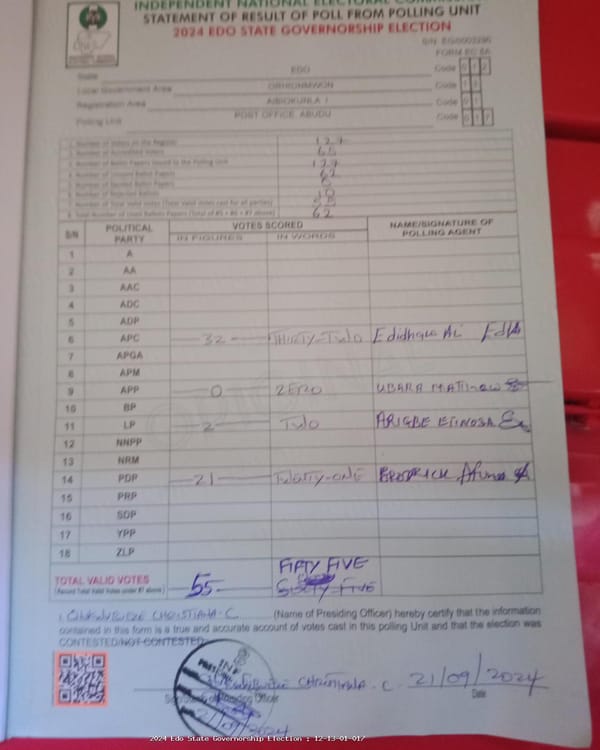 INDEPENDENT NATIONAL ELECTORAL
STATEMENT OF RESULT OF POLL FROM POLLING UNIT
2024 EDO STATE GOVERNORSHIP ELECTION
FORM EC 8A
State EDO Code 0 1 2
Local Government Area ORHIONMWON Code 1 3
Registration Area AIBIOKUNLA I Code 0 1
Polling Unit POST OFFICE, ABUDU Code 0 1 7
1. Number of Voters on the Register 127
2. Number of Accredited Voters 65
3. Number of Ballot Papers Issued to the Polling Unit 127
4. Number of Unused Ballot Papers 62
5. Number of Spoiled Ballot Papers 0
6. Number of Rejected Ballots 10
7. Number of Total Valid Votes (Total Valid Votes cast for all parties) 55
8. Total Number of Used Ballot Papers (Total of #5 + #6 + #7 above) 62
S/N POLITICAL PARTY VOTES SCORED NAME/SIGNATURE OF POLLING AGENT
IN FIGURES IN WORDS
1 A
2 AA
3 AAC
4 ADC
5 ADP
6 APC 32 THIRTY-TWO
7 APGA
8 APM
9 APP 0 ZERO UBARA MATTHEW
10 BP
11 LP 2 TWO ARIGBE
12 NNPP
13 NRM
14 PDP 21 TWENTY-ONE BRODRICK
15 PRP
16 SDP
17 YPP
18 ZLP
FIFTY FIVE
TOTAL VALID VOTES 55 SIXTY FIVE
(Record Total Valid Votes under #7 above)
I CHRISTIANA. C (Name of Presiding Officer) hereby certify that the information
contained in this form is a true and accurate account of votes cast in this polling Unit and that the election was
CONTESTED/NOT CONTESTED
CHRISTIANA. C. 21/09/2024
Signature of Presiding Officer Date
21/09/2024
2024 Edo State Governorship Election : 12-13-01-017